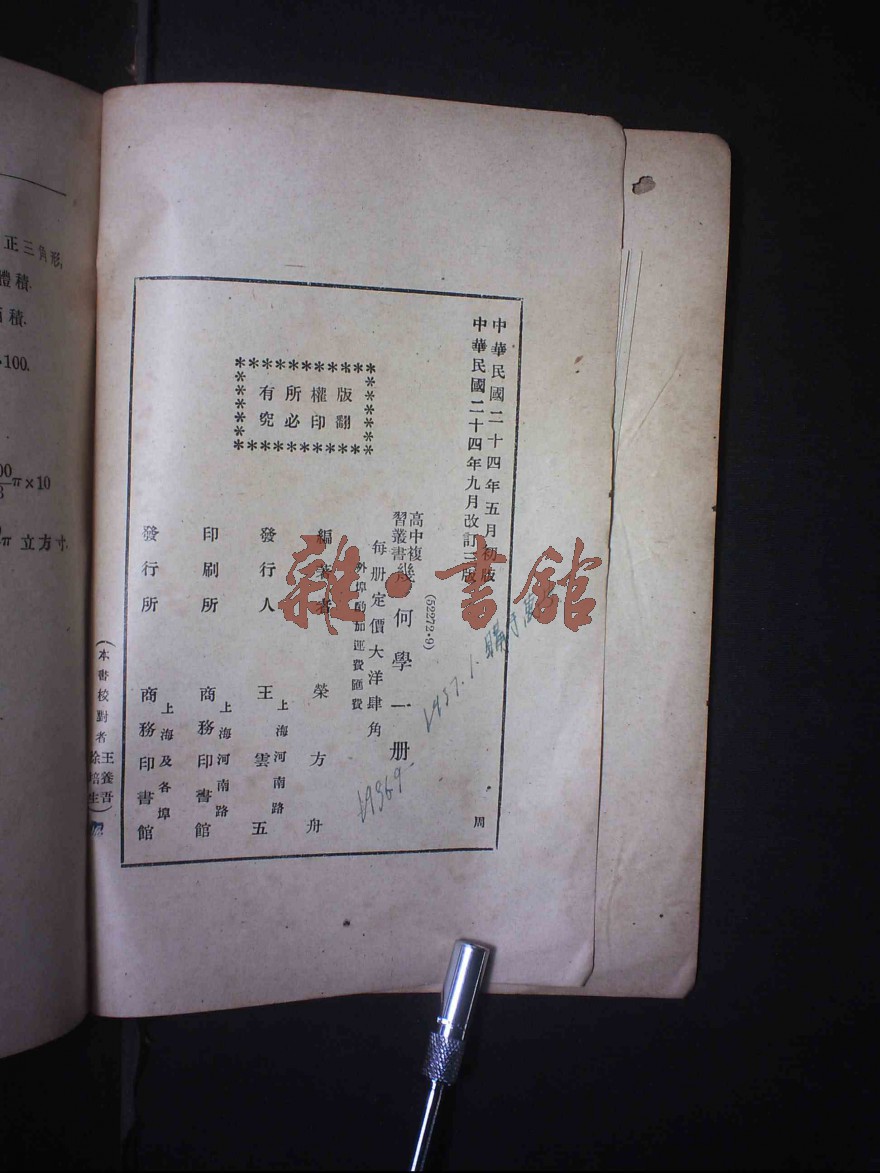 中華民國二十四年五月初版
中華民國二十四年九月改訂三版
周
(52272·9)
高中複習叢書
幾何學一册
每册定價大洋肆角
外埠酌加運費匯費
版權所有
翻印必究
編著者 榮方舟
發行人 王雲五
上海河南路
印刷所 商務印書館
上海河南路
發行所 商務印書館
上海及各埠
(本書校對者 王養吾 徐培生)
1957.1.購于
雜·書館
正三角形,
體積.
積.
100.
π×10
π 立方寸.